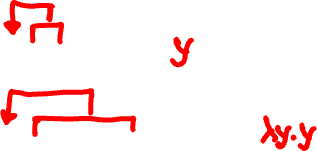 y
λy.y